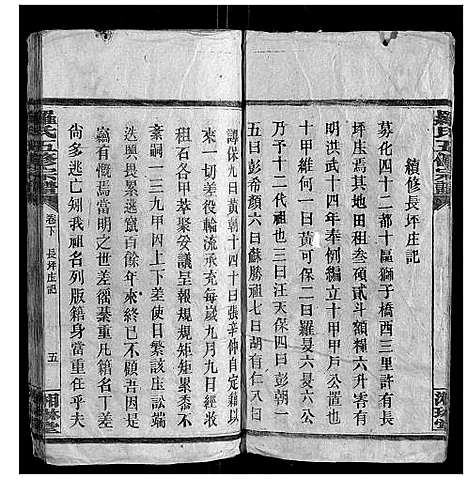 羅氏五修宗譜
續修長坪庄記
募化四十二都十區獅子橋西三里許有長
坪庄焉其地田租叁頒貳斗額糧六升零有
明洪武十四年奉例編立十甲甲戶公置也
十甲維何一曰黃可保二曰羅戛六戛六公
乃予十二代祖也三曰汪天保四曰彭朝一
五曰彭希顏六曰蘇勝祖七曰胡有仁八曰
譚保九曰黃朝十四十曰張辛仲自定籍以
來一切差役輪流承充每歲九月九日經收
租石各甲萃聚妥議呈報規規矩矩累黍不
紊嗣一三九甲因上下差使日繁該庄訟端
迭興畏累逃竄百餘年來終已不顧吾因是
竊有慨焉當明之世差徭綦重凡籍名丁差
尙多逃亡幾知我祖名列版籍身當重任乎夫
羅氏五修宗譜
卷下
長坪庄記
五
湘琳堂